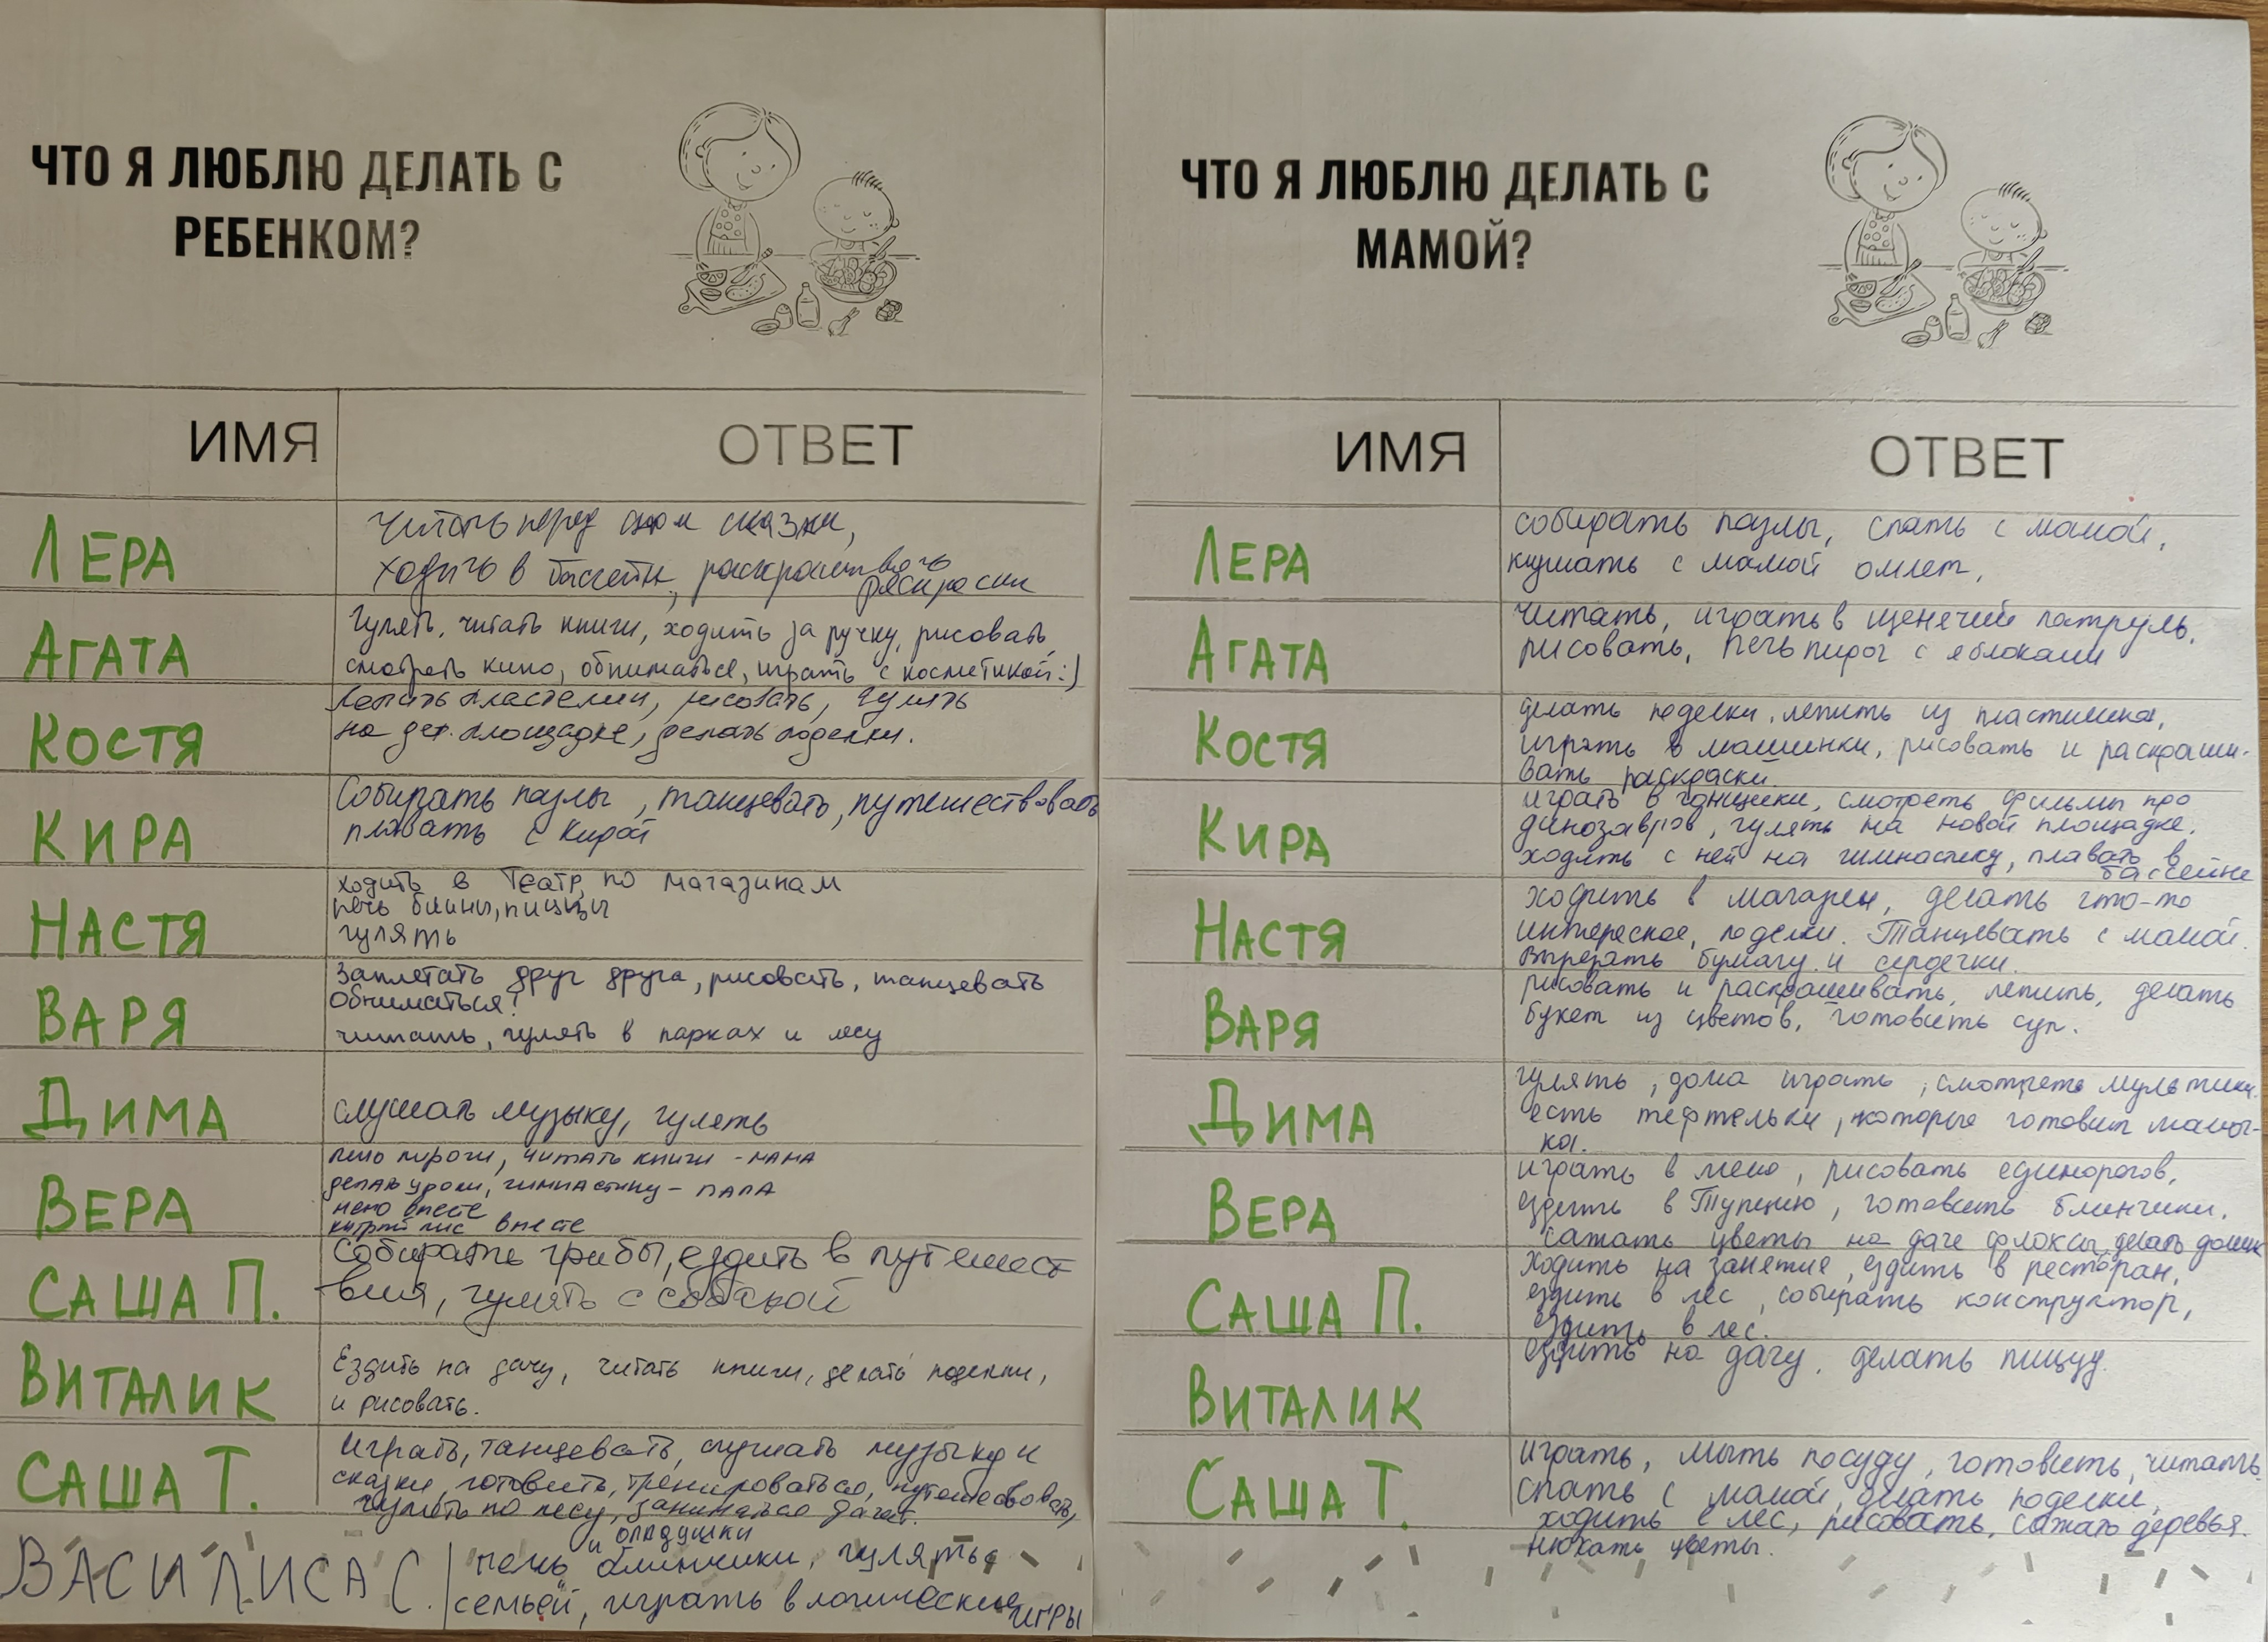 ЧТО Я ЛЮБЛЮ ДЕЛАТЬ С
РЕБЕНКОМ?
ИМЯ
ОТВЕТ
ЛЕРА
читать перед сном сказки,
ходить в бассейн, раскрашивать
раскраски
АГАТА
Гулять, читать книги, ходить за ручку, рисовать,
смотреть кино, обниматься, играть с косметикой :)
КОСТЯ
Лепить пластелин, рисовать, гулять
на дет. площадке, делать поделки.
КИРА
Собирать пазлы, танцевать, путешествовать
плавать с Кирой
НАСТЯ
ходить в театр, по магазинам
печь блины, пиццы
гулять
ВАРЯ
Заплетать друг друга, рисовать, танцевать
обниматься!
читать, гулять в парках и лесу
ДИМА
слушать музыку, гулять
ВЕРА
пеко пироги, читать книги - мама
делаю уроки, гимнастику - папа
мено вместе
хитрый лис вместе
САША П.
Собирать грибы, ездить в путешест
вия, гулять с собакой
ВИТАЛИК
Ездить на дачу, читать книги, делать поделки,
и рисовать.
САША Т.
Играть, танцевать, слушать музыку и
сказки, готовить, тренироваться, путешествовать,
гулять по лесу, заниматься дачей.
ВАСИЛИСА С.
и оладушки
печь блинчики, гулять с
семьей, играть в логические
игры
ЧТО Я ЛЮБЛЮ ДЕЛАТЬ С
МАМОЙ?
ИМЯ
ОТВЕТ
ЛЕРА
собирать пазлы, спать с мамой,
кушать с мамой омлет,
АГАТА
читать, играть в щенячий патруль,
рисовать, печь пирог с яблоками
КОСТЯ
делать поделки, лепить из пластилина,
играть в машинки, рисовать и раскраши-
вать раскраски.
КИРА
играть в гонщики, смотреть фильмы про
динозавров, гулять на новой площадке,
ходить с ней на гимнастику, плавать в
бассейне
НАСТЯ
ходить в магазин, делать что-то
интересное, поделки. Танцевать с мамой.
вырезать бумагу и сердечки.
ВАРЯ
рисовать и раскрашивать, лепить, делать
букет из цветов, готовить суп.
ДИМА
гулять, дома играть, смотреть мультики
есть тефтельки, которые готовит мамоч-
ка.
ВЕРА
играть в мено, рисовать единорогов,
ездить в Турцию, готовить блинчики,
сажать цветы на даче флоксы, делать домик
САША П.
Ходить на занятие, ездить в ресторан,
ездить в лес, собирать конструктор,
ездить в лес.
ВИТАЛИК
ездить на дачу, делать пиццу.
САША Т.
играть, мыть посуду, готовить, читать
спать с мамой, делать поделки,
ходить в лес, рисовать, сажать деревья.
нюхать цветы.